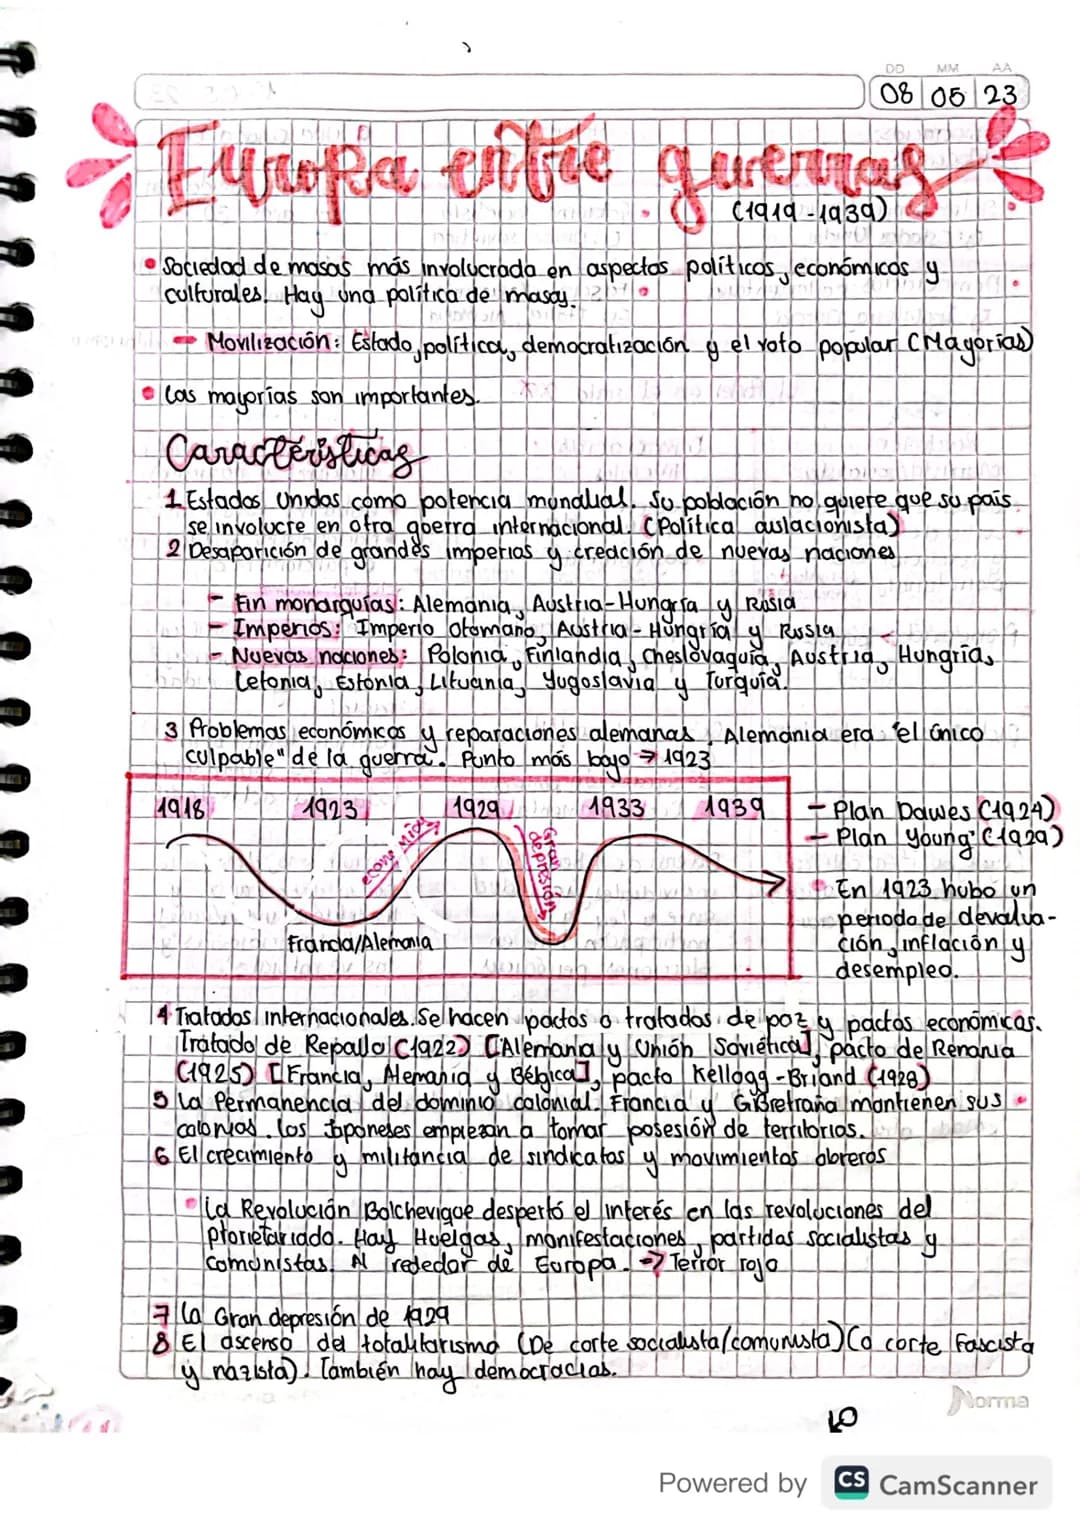 DD MM AA
08 05 23
Europa entre guerras
(1919-1939)
• Sociedad de masas más involucrada en aspectos políticos, económicos y
culturales. Hay una política de masas.
- Movilización: Estado, política, democratización y el voto popular (Mayorías)
• Las mayorías son importantes.
Características
1 Estados Unidos como potencia mundial. Su población no quiere que su país
se involucre en otra guerra internacional. (Política aislacionista)
2 Desaparición de grandes imperios y creación de nuevas naciones
- Fin monarquías: Alemania, Austria-Hungría y Rusia
- Imperios: Imperio Otomano, Austria-Hungría y Rusia
- Nuevas naciones: Polonia, Finlandia, Cheslovaquia, Austria, Hungría,
Letonia, Estonia, Lituania, Yugoslavia y Turquía.
3 Problemas económicos y reparaciones alemanas. Alemania era "el único
culpable" de la guerra. Punto más bajo → 1923
1918 1923 1929 1933 1939
economía
Gran depresión
Francia/Alemania
- Plan Dawes (1924)
- Plan Young (1929)
• En 1923 hubo un
periodo de devalua-
ción, inflación y
desempleo.
4 Tratados internacionales. Se hacen pactos o tratados de paz y pactos económicos.
Tratado de Repallo (1922) [Alemania y Unión Soviética], pacto de Renania
(1925) [Francia, Alemania y Bélgica], pacto Kellogg-Briand (1928)
5 La Permanencia del dominio colonial. Francia y G.Bretraña mantienen sus
colonias. Los Japoneses empiezan a tomar posesión de territorios.
6 El crecimiento y militancia de sindicatos y movimientos obreros
• La Revolución Bolchevique despertó el interés en las revoluciones del
proletariado. Hay Huelgas, manifestaciones, partidos socialistas y
comunistas. Al rededor de Europa. → Terror rojo
7 La Gran depresión de 1929
8 El ascenso del totalitarismo (De corte socialista/comunista) (o corte Fascista
y nazista). También hay democracias.
Norma
Powered by CS CamScanner